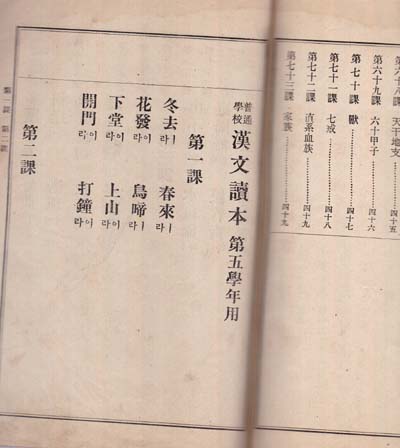 第六十八課 天干地支 四十五
第六十九課 六十甲子 四十六
第七十課 獸 四十七
第七十一課 七戒 四十八
第七十二課 直系血族 四十九
第七十三課 家族 四十九
普通學校 漢文讀本 第五學年用
第一課
冬去ㅣ라 春來ㅣ라
花發이라 鳥啼ㅣ라
下堂이라 上山이라
開門이라 打鐘이라
第二課